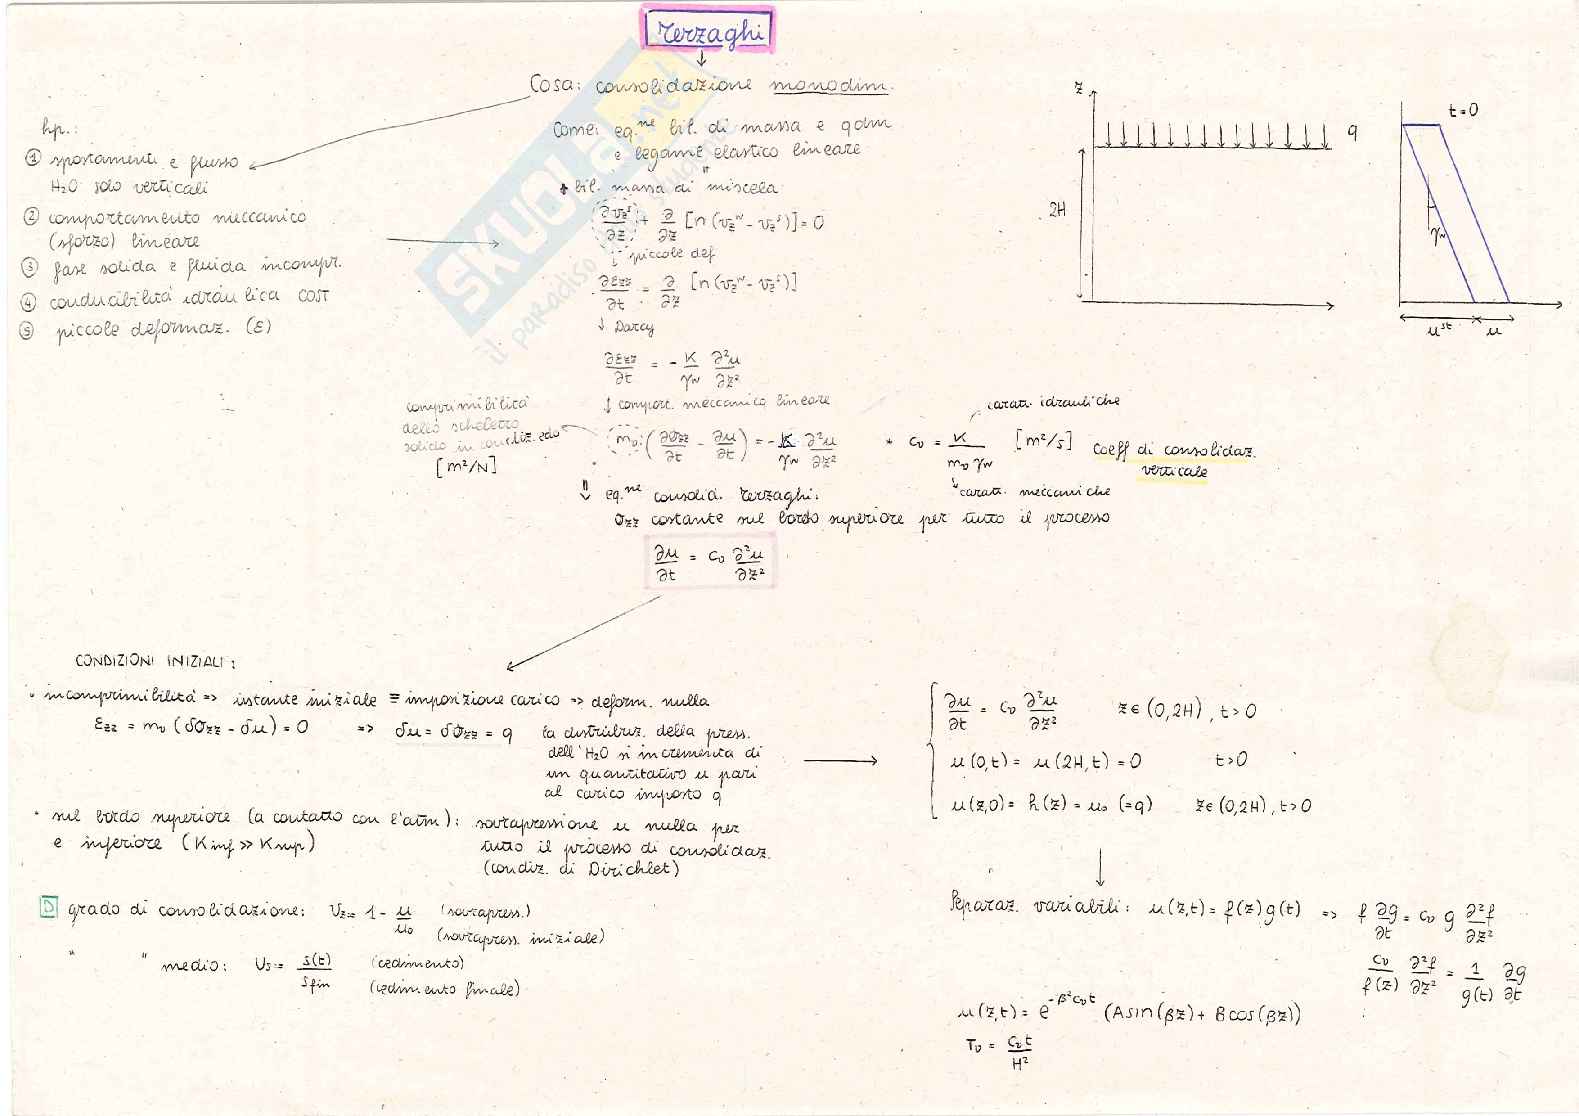 Terzaghi
Cosa: consolidazione monodim.
Come: eq.ne bil. di massa e qdm
e legame elastico lineare
hp.:
① spostamenti e flusso
H₂O solo verticali
② comportamento meccanico
(sforzo) lineare
③ fase solida e fluida incompr.
④ conducibilità idraulica COST
⑤ piccole deformaz. (ε)
+ bil. massa di miscela
∂v_z^s/∂z + ∂/∂z [n(v_z^w - v_z^s)] = 0
↓ piccole def
∂ε_zz/∂t = ∂/∂z [n(v_z^w - v_z^s)]
↓ Darcy
∂ε_zz/∂t = - K/γw ∂²u/∂z²
↓ comport. meccanico lineare
comprimibilità
dello scheletro
solido in condiz. edo
[m²/N]
m_v (∂σ_zz/∂t - ∂u/∂t) = - K/γw ∂²u/∂z²
caratt. idrauliche
* c_v = K/(m_v γw) [m²/s] coeff di consolidaz.
verticale
caratt. meccaniche
⇓ eq.ne consolid. Terzaghi:
σ_zz costante sul bordo superiore per tutto il processo
∂u/∂t = c_v ∂²u/∂z²
z
q
2H
t=0
γw
u^st u
SKUOLA.net
il paradiso
CONDIZIONI INIZIALI:
• incomprimibilità => istante iniziale ≡ imposizione carico => deform. nulla
ε_zz = m_v (δσ_zz - δu) = 0 => δu = δσ_zz = q
la distribuz. della press.
dell'H₂O si incrementa di
un quantitativo u pari
al carico imposto q
• sul bordo superiore (a contatto con l'atm):
e inferiore (K inf >> K sup)
sovrapressione u nulla per
tutto il processo di consolidaz.
(condiz. di Dirichlet)
D grado di consolidazione: U_z = 1 - u/u₀ (sovrapress.)
(sovrapress. iniziale)
" " medio: U_s = s(t)/s fin (cedimento)
(cedimento finale)
∂u/∂t = c_v ∂²u/∂z² z ∈ (0,2H), t>0
u(0,t) = u(2H,t) = 0 t>0
u(z,0) = h(z) = u₀ (=q) z ∈ (0,2H), t>0
Separaz. variabili: u(z,t) = f(z)g(t) => f ∂g/∂t = c_v g ∂²f/∂z²
c_v/f(z) ∂²f/∂z² = 1/g(t) ∂g/∂t
u(z,t) = e^(-β²c_v t) (A sin(βz) + B cos(βz))
T_v = c_v t/H²